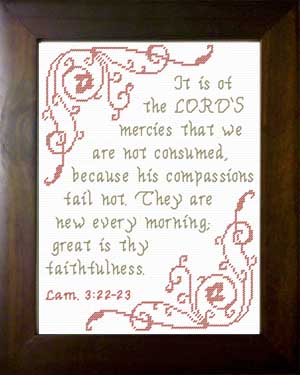 It is of
the LORD'S
mercies that we
are not consumed,
because his compassions
fail not. They are
new every morning;
great is thy
faithfulness.
Lam. 3:22-23